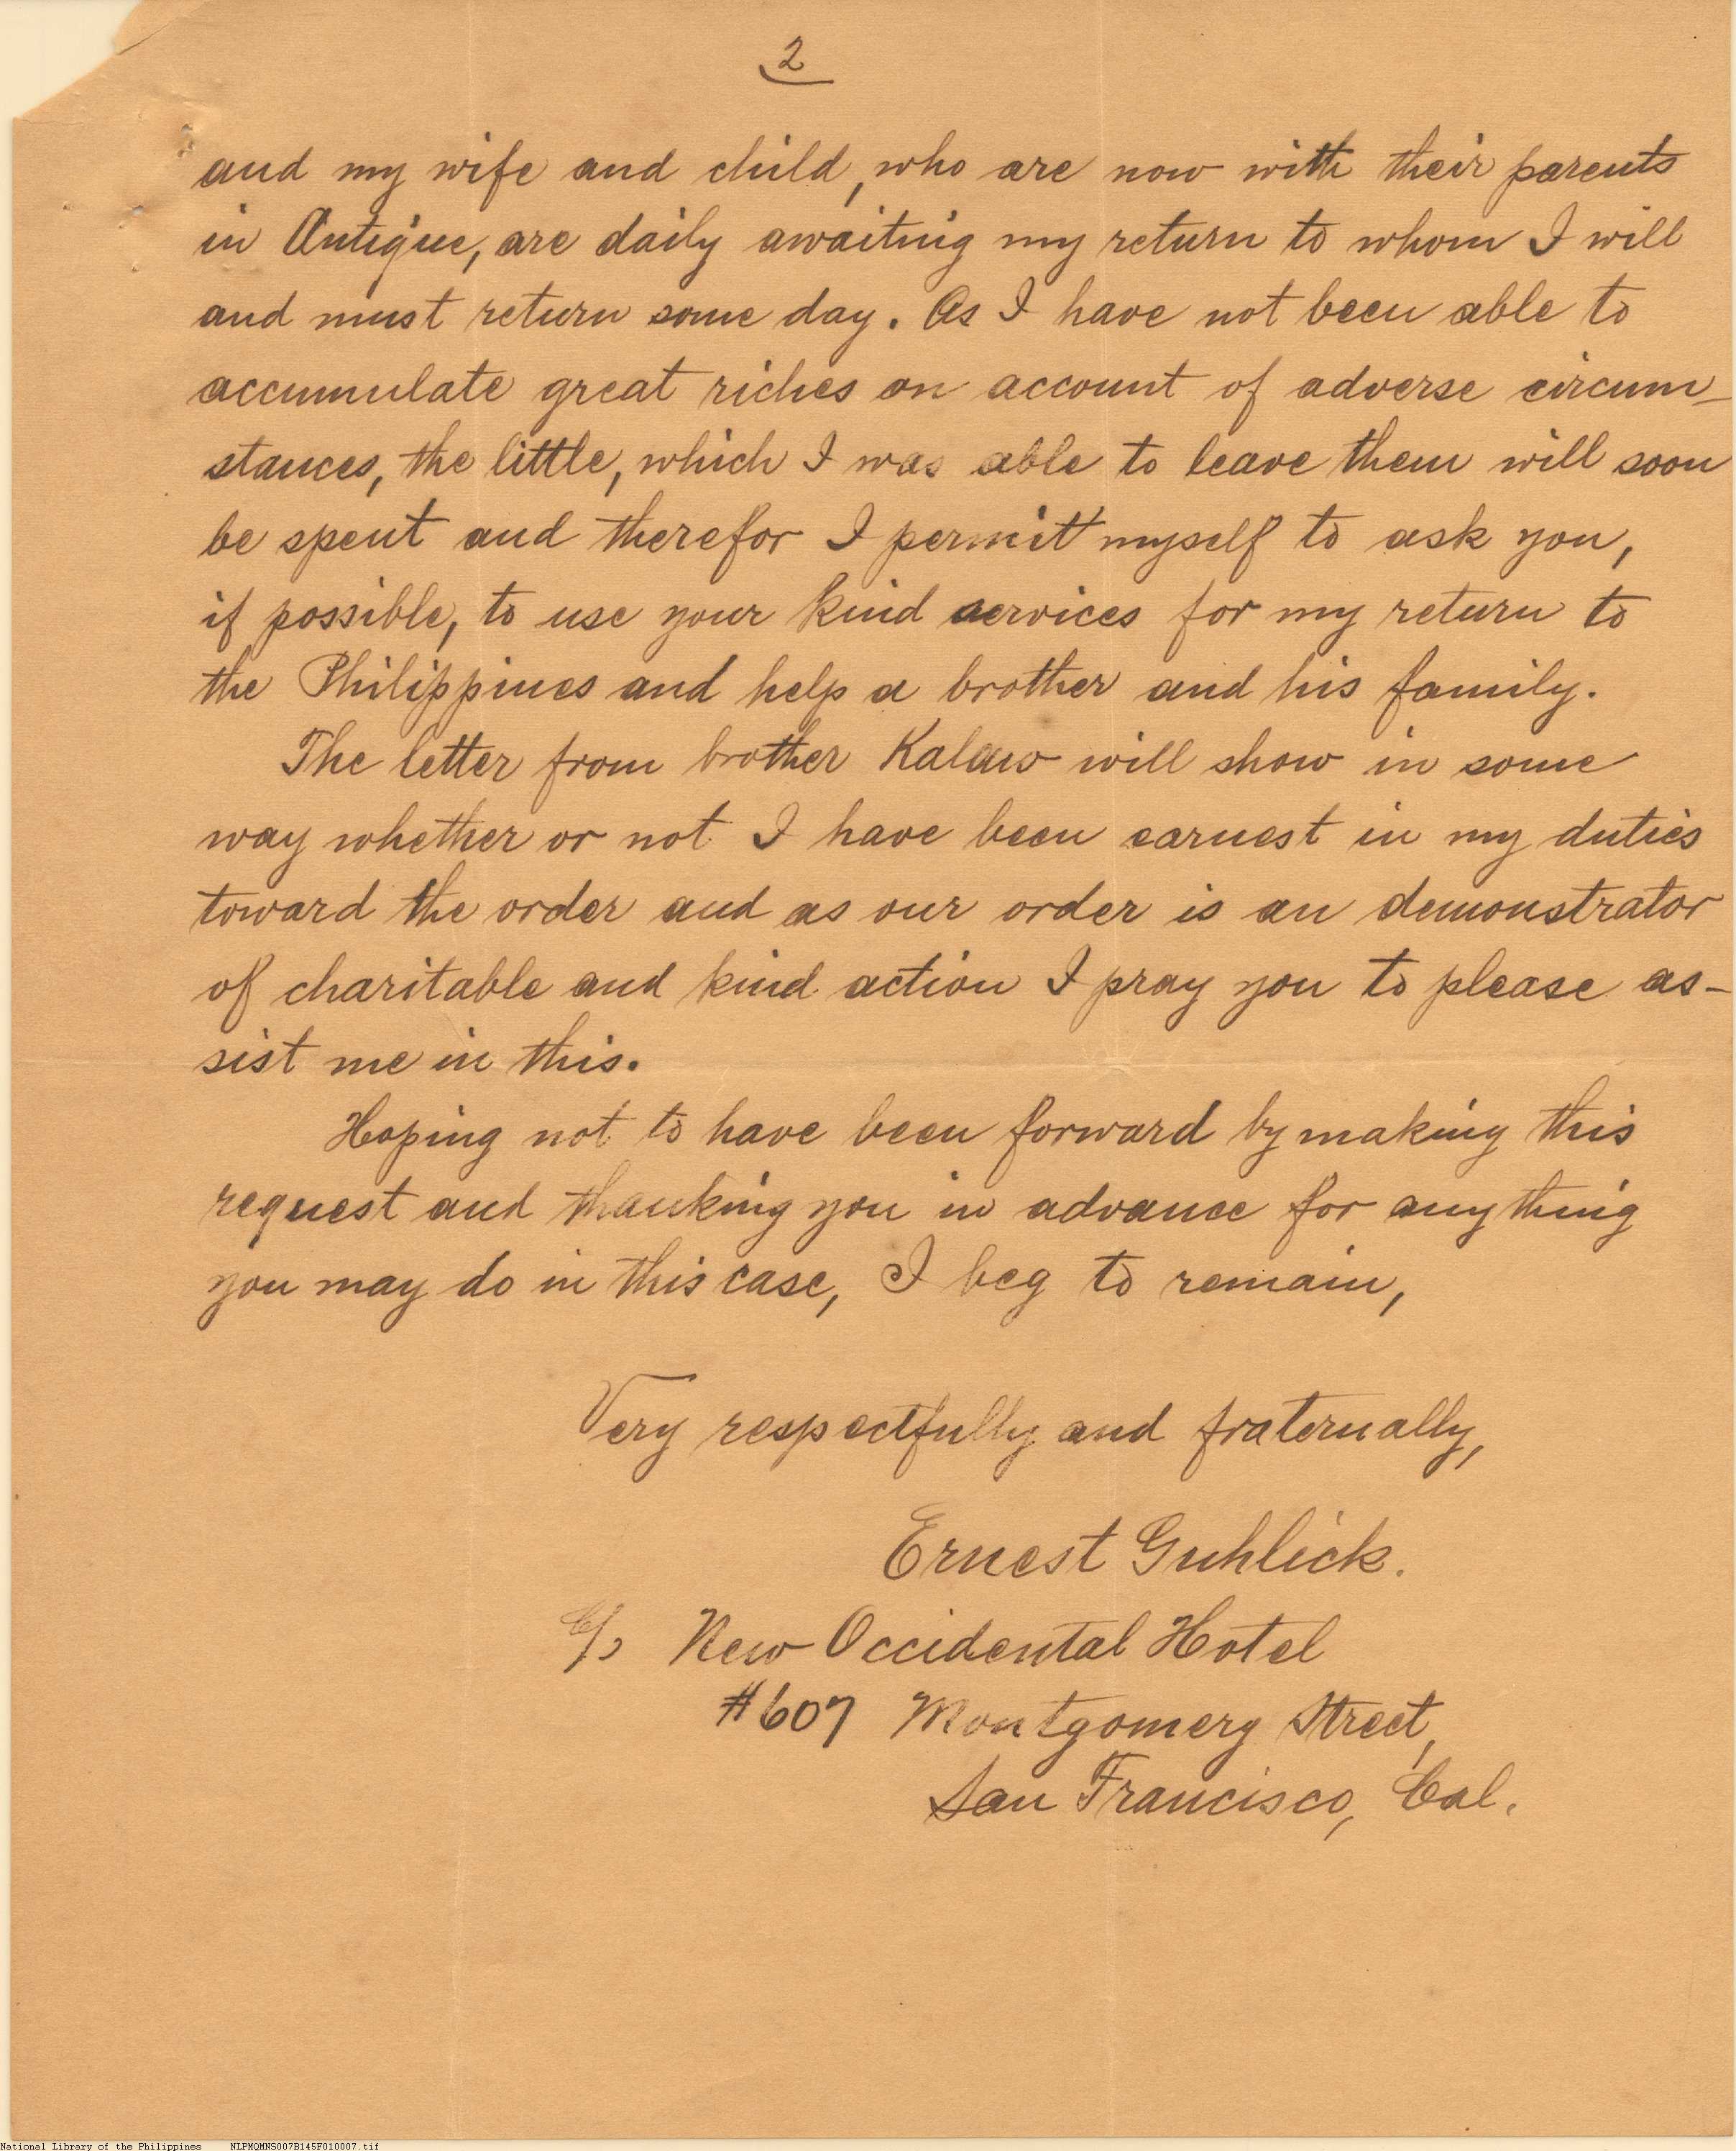 2
and my wife and child, who are now with their parents
in Antique, are daily awaiting my return to whom I will
and must return some day. As I have not been able to
accumulate great riches on account of adverse circum-
stances, the little, which I was able to leave them will soon
be spent and therefor I permit myself to ask you,
if possible, to use your kind services for my return to
the Philippines and help a brother and his family.
The letter from brother Kalaw will show in some
way whether or not I have been earnest in my duties
toward the order and as our order is an demonstrator
of charitable and kind action I pray you to please as-
sist me in this.
Hoping not to have been forward by making this
request and thanking you in advance for anything
you may do in this case, I beg to remain,
Very respectfully and fraternally,
Ernest Guhlick.
c/o New Occidental Hotel
#607 Montgomery Street,
San Francisco, Cal.
National Library of the Philippines NLPMQMNS007B145F010007.tif